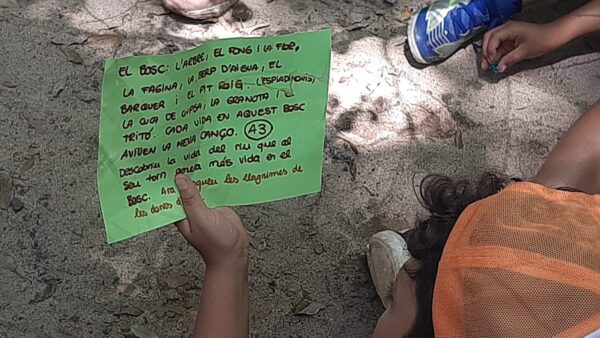 EL BOSC: L'ARBRE, EL FONG I LA FLOR,
LA FAGINA, LA PERD D'AIGUA, EL
BARQUER I EL PIT ROIG. L'ESPIADIMONIS,
LA CUCA DE CAPSA, LA GRANOTA I EL
TRITÓ. CADA VIDA EN AQUEST BOSC
AVIVEN LA MEVA CANÇÓ. 43
Descobriu la vida del riu que al
seu torn dona més vida en el
BOSC. Ara les llàgrimes de
les dones